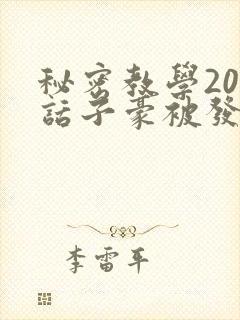 秘密教學20
話子豪被發
李雷平